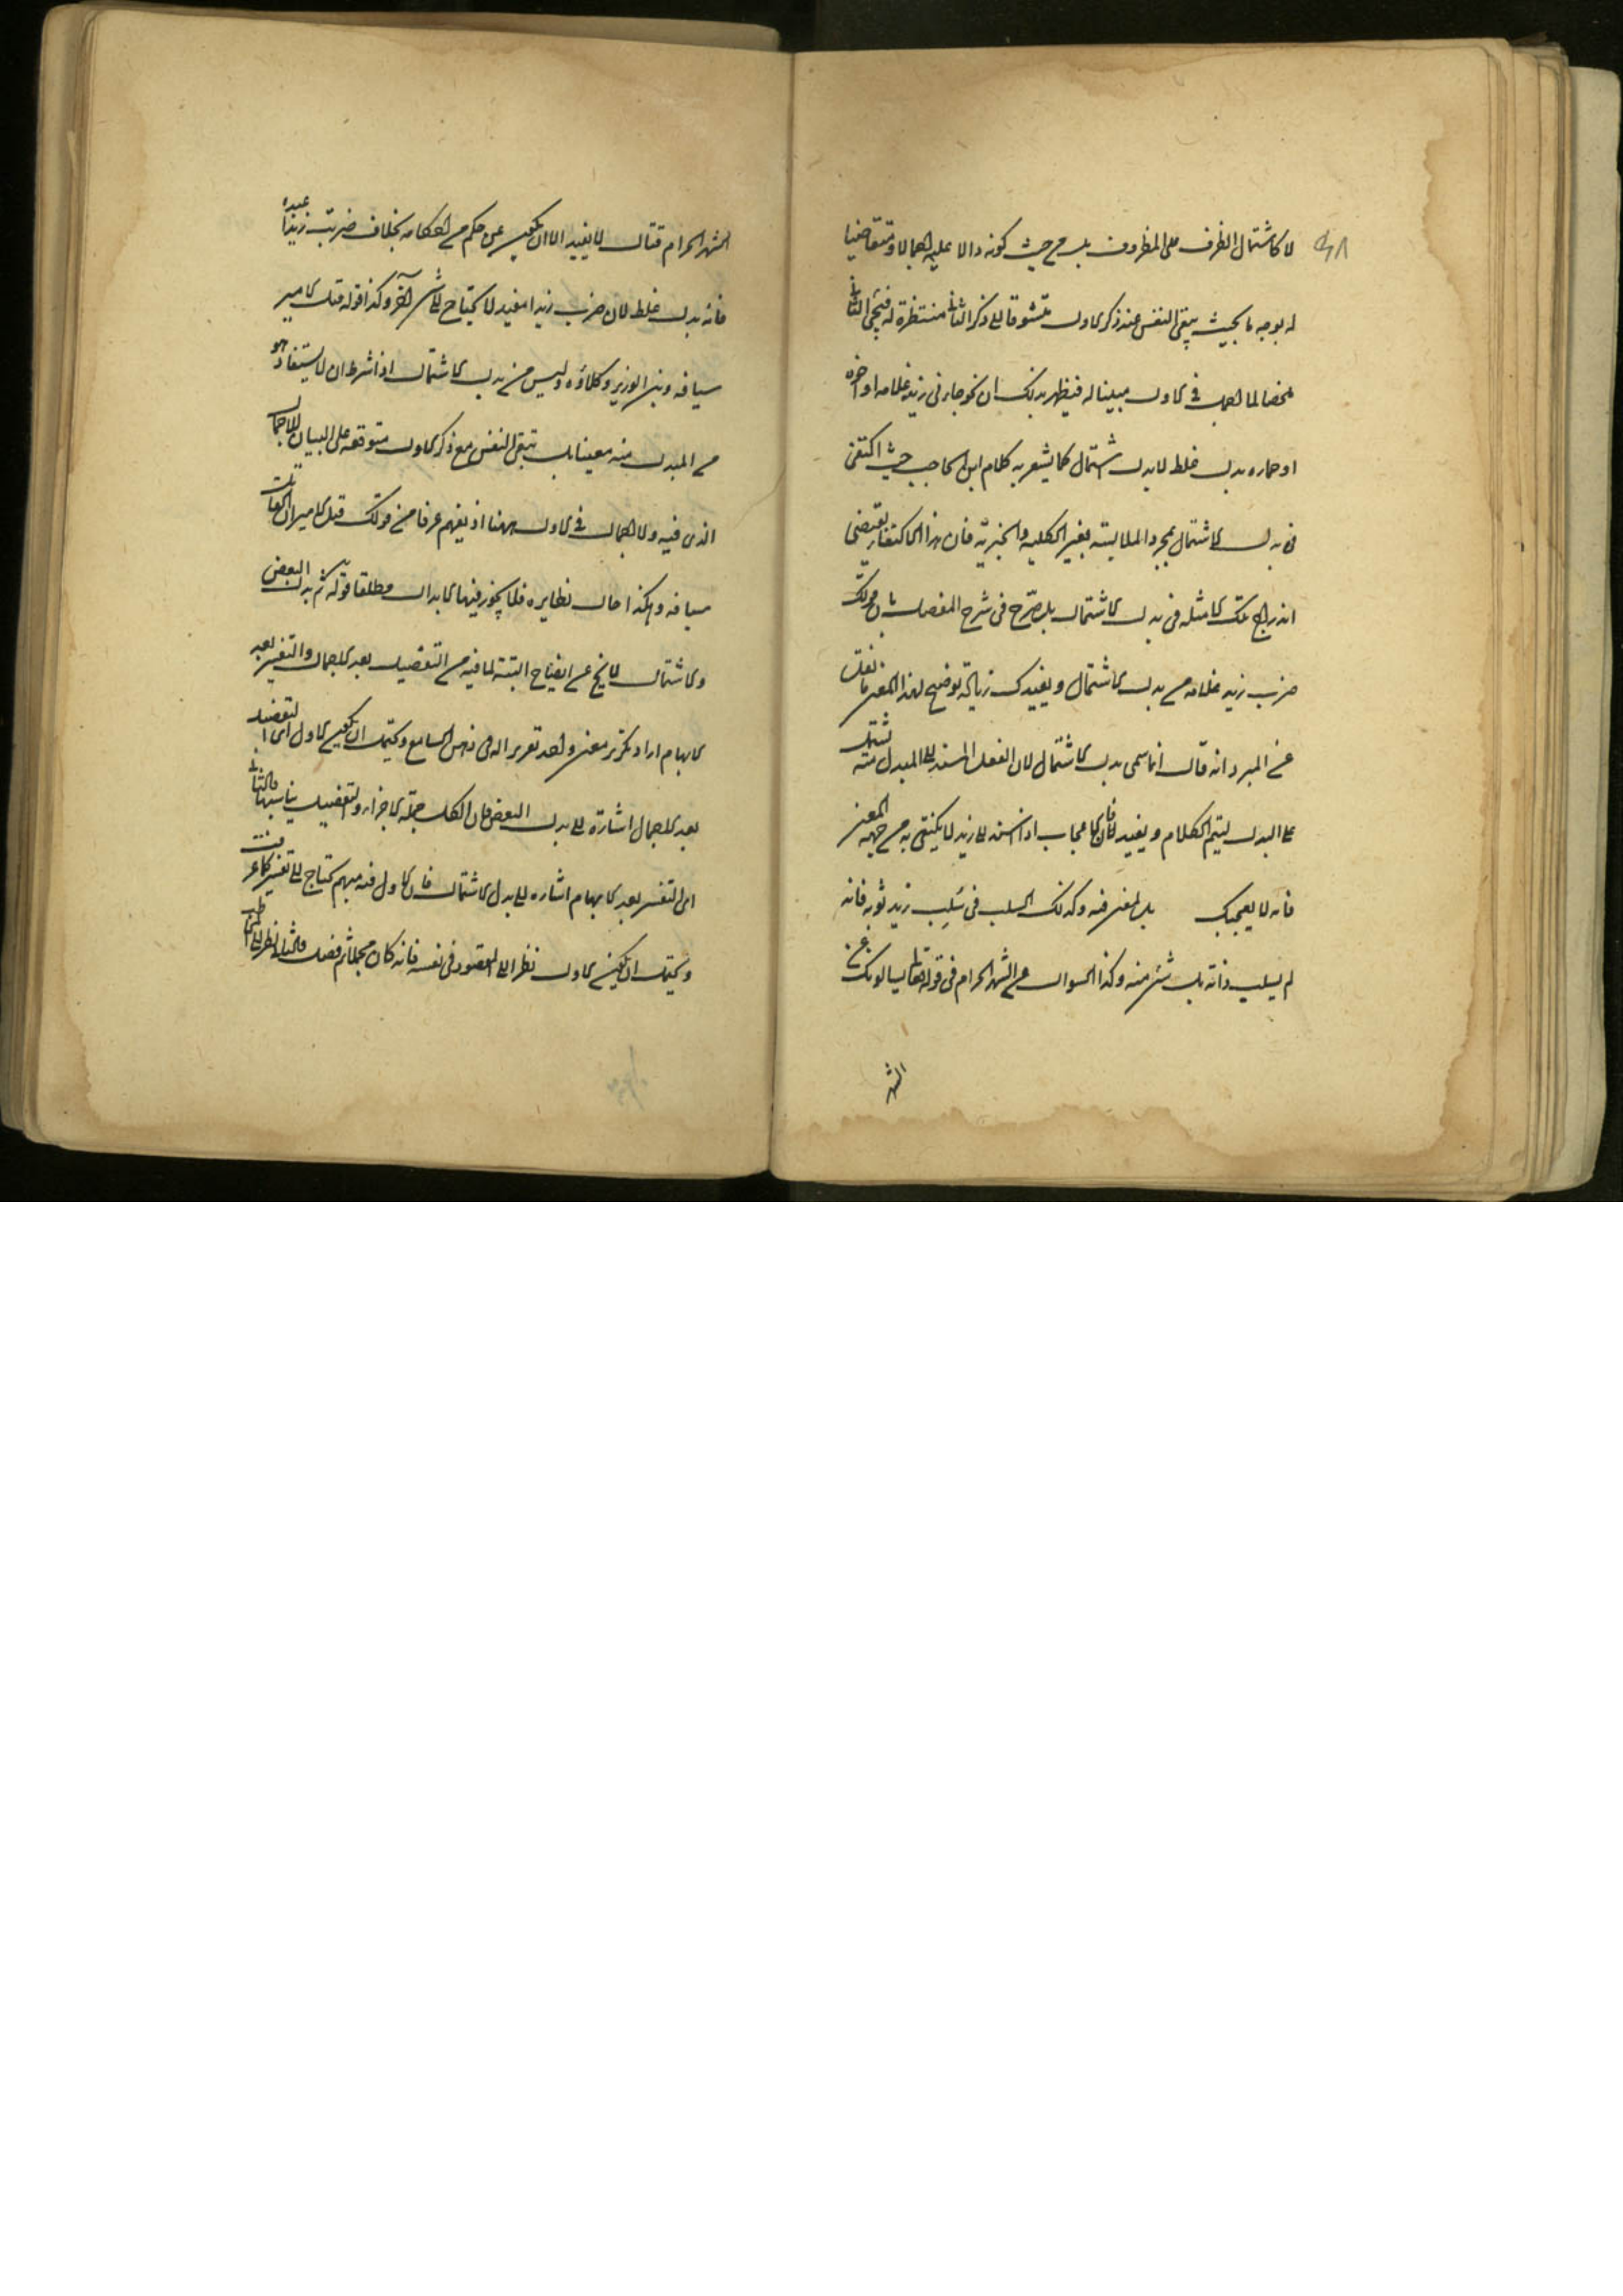 لا كاشتمال الظرف على المظروف بل من حيث كونه دالا عليه اجمالا ومتقاضيا
له بوجه ما بحيث يبقى النفس عند ذكر الاول متشوقة الى ذكر الثاني منتظرة له فيجئ الثاني
ملخصا لما اجمل في الاول مبينا له فيظهر بذلك ان نحو جاءني زيد غلامه او اخوه
او حماره بدل غلط لا بدل اشتمال كما يشعر به كلام ابن الحاجب حيث اكتفى
في بدل الاشتمال بمجرد الملابسة بغير الكلية والجزئية فان هذا الاكتفاء يقتضي
اندراج تلك الامثلة في بدل الاشتمال بل صرّح في شرح المفصل بان قولك
ضرب زيد غلامه من بدل الاشتمال ويفيدك زيادة توضيح لهذا المعنى ما نقل
عن المبرد انه قال انما سمى بدل الاشتمال لان الفعل المسند الى المبدل منه يشتمل
على البدل ليتم الكلام ويفيد فان الاعجاب اذا اسند الى زيد لا يكتفى به من جهة المعنى
فانه لا يعجبك بل لمعنى فيه وكذلك السلب في سُلِب زيد ثوبه فانه
لم يسلب ذاته بل شئ منه وكذا السوال عن الشهر الحرام في قوله تعالى يسالونك عن
الشهر
الشهر الحرام قتال لا يفيد الا ان يكون عن حكم من احكامه بخلاف ضربت زيدا عبده
فانه بدل غلط لان ضرب زيدا مفيد لا يحتاج الى شئ آخر وكذا قوله قتل الامير
سيافه وبنى الوزير وكلاؤه وليس من بدل الاشتمال اذ شرطه ان لا يستفاد هو
من المبدل منه معينا بل تبقى النفس مع ذكر الاول متوقعة على البيان للاجمال
الذى فيه ولا اجمال في الاول ههنا اذ يفهم عرفا من قولك قتل الامير ان القاتل
سيافه وهكذا حال نظايره فلا يجوز فيها الابدال مطلقا قوله ثم بدل البعض
والاشتمال لا يخ عن ايضاح البتة لما فيه من التفصيل بعد الاجمال والتفسير بعد
الابهام اراد تكرير معنى واحد تقريرا له في ذهن السامع ويحتمل ان يكون الاول اى التفصيل
بعد الاجمال اشارة الى بدل البعض فان الكل جملة الاجزاء والتفصيل يناسبها والثاني
اى التفسير بعد الابهام اشارة الى بدل الاشتمال فان الاول فيه مبهم يحتاج الى تفسير كما عرفت
ويحتمل ان يكون الاول نظرا الى المقصود في نفسه فانه كان مجملا ثم فصل والثاني نظرا الى المخاطب